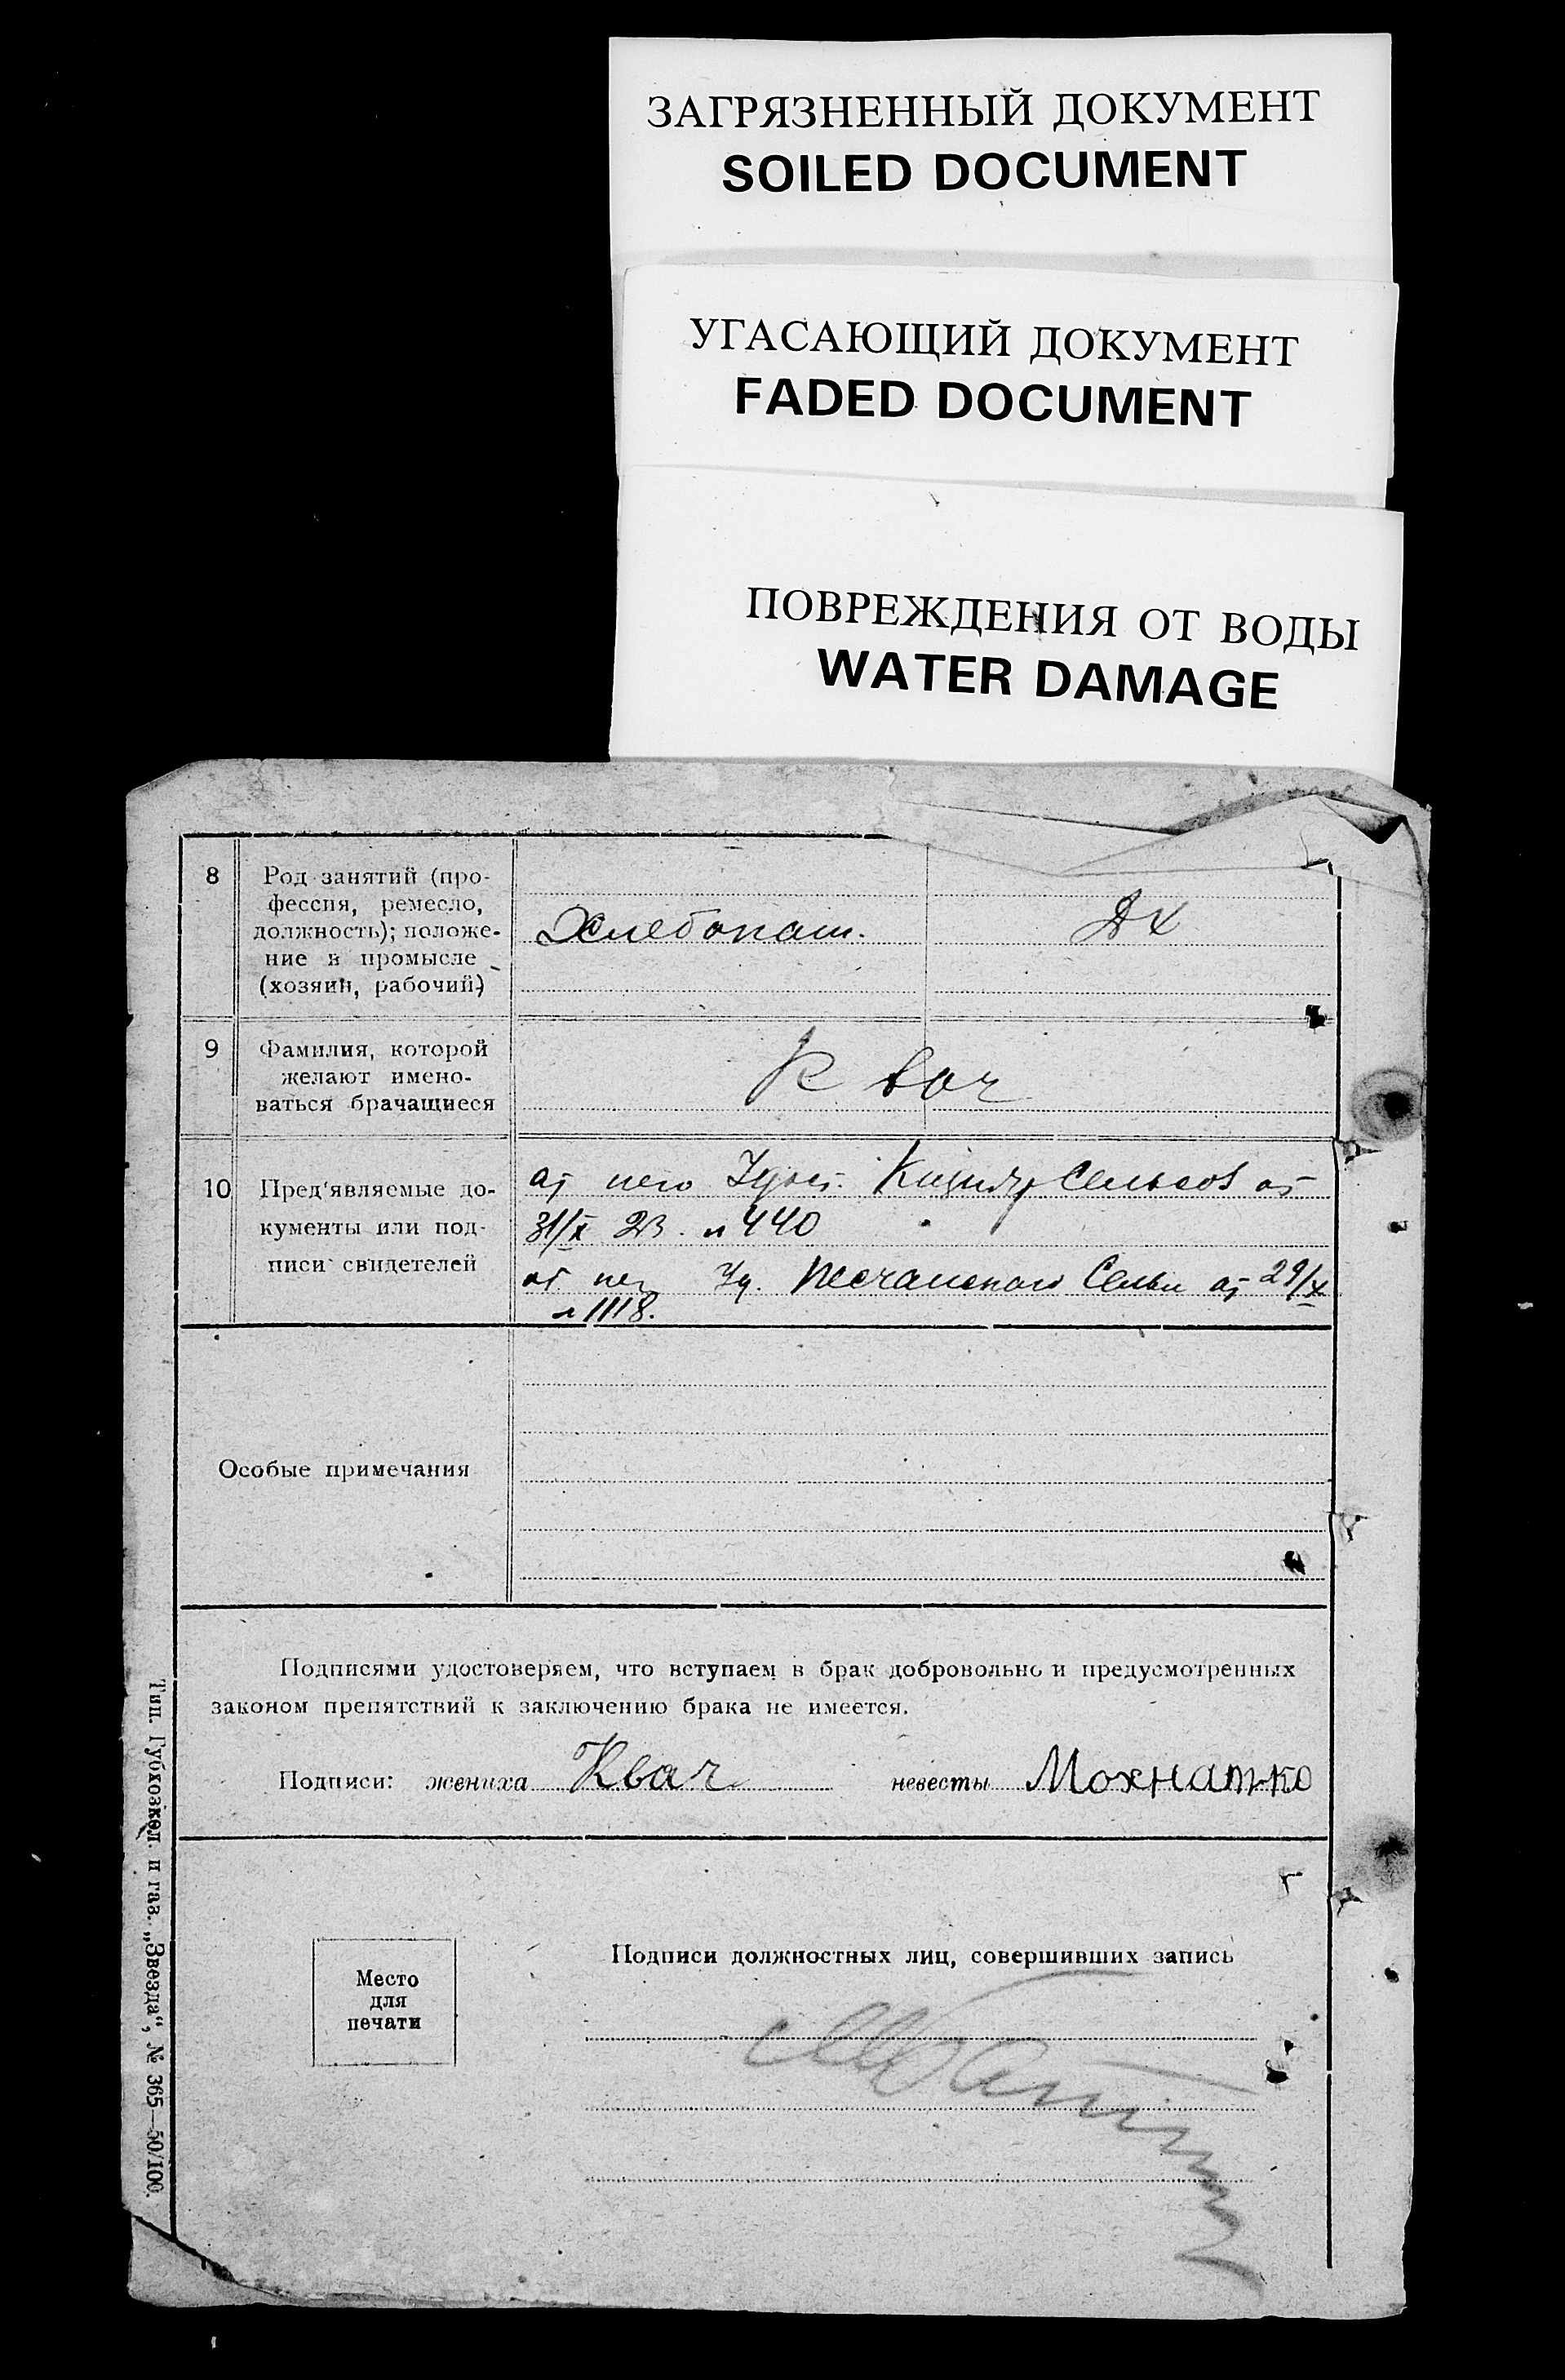 ЗАГРЯЗНЕННЫЙ ДОКУМЕНТ
SOILED DOCUMENT
УГАСАЮЩИЙ ДОКУМЕНТ
FADED DOCUMENT
ПОВРЕЖДЕНИЯ ОТ ВОДЫ
WATER DAMAGE
8
Род занятий (про-
фессия, ремесло,
должность); положе-
ние в промысле
(хозяин, рабочий)
Хлебопаш.
ДХ
9
Фамилия, которой
желают имено-
ваться брачащиеся
Квач
10
Пред'являемые до-
кументы или под-
писи свидетелей
от него Сельсов от
31/X 23. н 440
от нея Уд. Песчанского Сельи от 29/X
н 1118.
Особые примечания
Подписями удостоверяем, что вступаем в брак добровольно и предусмотренных
законом препятствий к заключению брака не имеется.
Подписи: жениха Квач невесты Мохнатко
Место
для
печати
Подписи должностных лиц, совершивших запись
Тип. Губхозкол. и газ. „Звезда“, № 365—50/100.